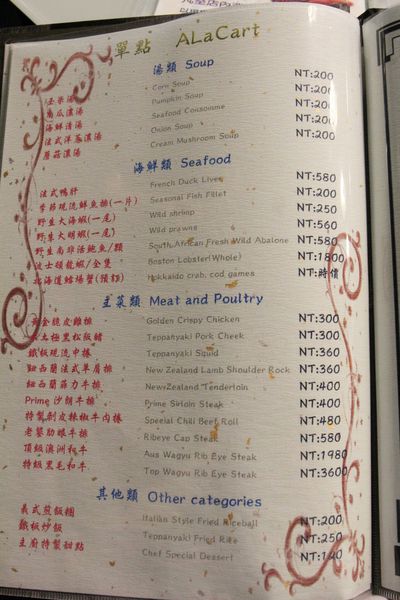 單點 ALaCart
湯類 Soup
玉米湯 Corn Soup NT:200
南瓜濃湯 Pumpkin Soup NT:200
海鮮清湯 Seafood Consomme NT:200
法式洋蔥濃湯 Onion Soup NT:200
蘑菇濃湯 Cream Mushroom Soup NT:200
海鮮類 Seafood
法式鴨肝 French Duck Liver NT:580
季節現流鮮魚排(一片) Seasonal Fish Fillet NT:200
野生大海蝦(一尾) Wild shrimp NT:250
野生大明蝦(一尾) Wild prawns NT:560
野生南非活鮑魚/顆 South African Fresh Wild Abalone NT:580
波士頓龍蝦/全隻 Boston Lobster(Whole) NT:1800
北海道鱈場蟹(預訂) Hokkaido crab, cod games NT:時價
主菜類 Meat and Poultry
黃金脆皮雞排 Golden Crispy Chicken NT:300
極黑松板豬 Teppanyaki Pork Cheek NT:300
鐵板現流中捲 Teppanyaki Squid NT:360
紐西蘭法式羊肩排 New Zealand Lamb Shoulder Rock NT:360
紐西蘭菲力牛排 New Zealand Tenderloin NT:400
Prime 沙朗牛排 Prime Sirloin Steak NT:400
特製剝皮辣椒牛肉捲 Special Chili Beef Roll NT:480
老饕肋眼牛排 Ribeye Cap Steak NT:580
頂級澳洲和牛 Aus Wagyu Rib Eye Steak NT:1980
特級黑毛和牛 Top Wagyu Rib Eye Steak NT:3600
其他類 Other categories
義式煎飯糰 Italian Style Fried Riceball NT:200
鐵板炒飯 Teppanyaki Fried Rice NT:250
主廚特製甜點 Chef Special Dessert